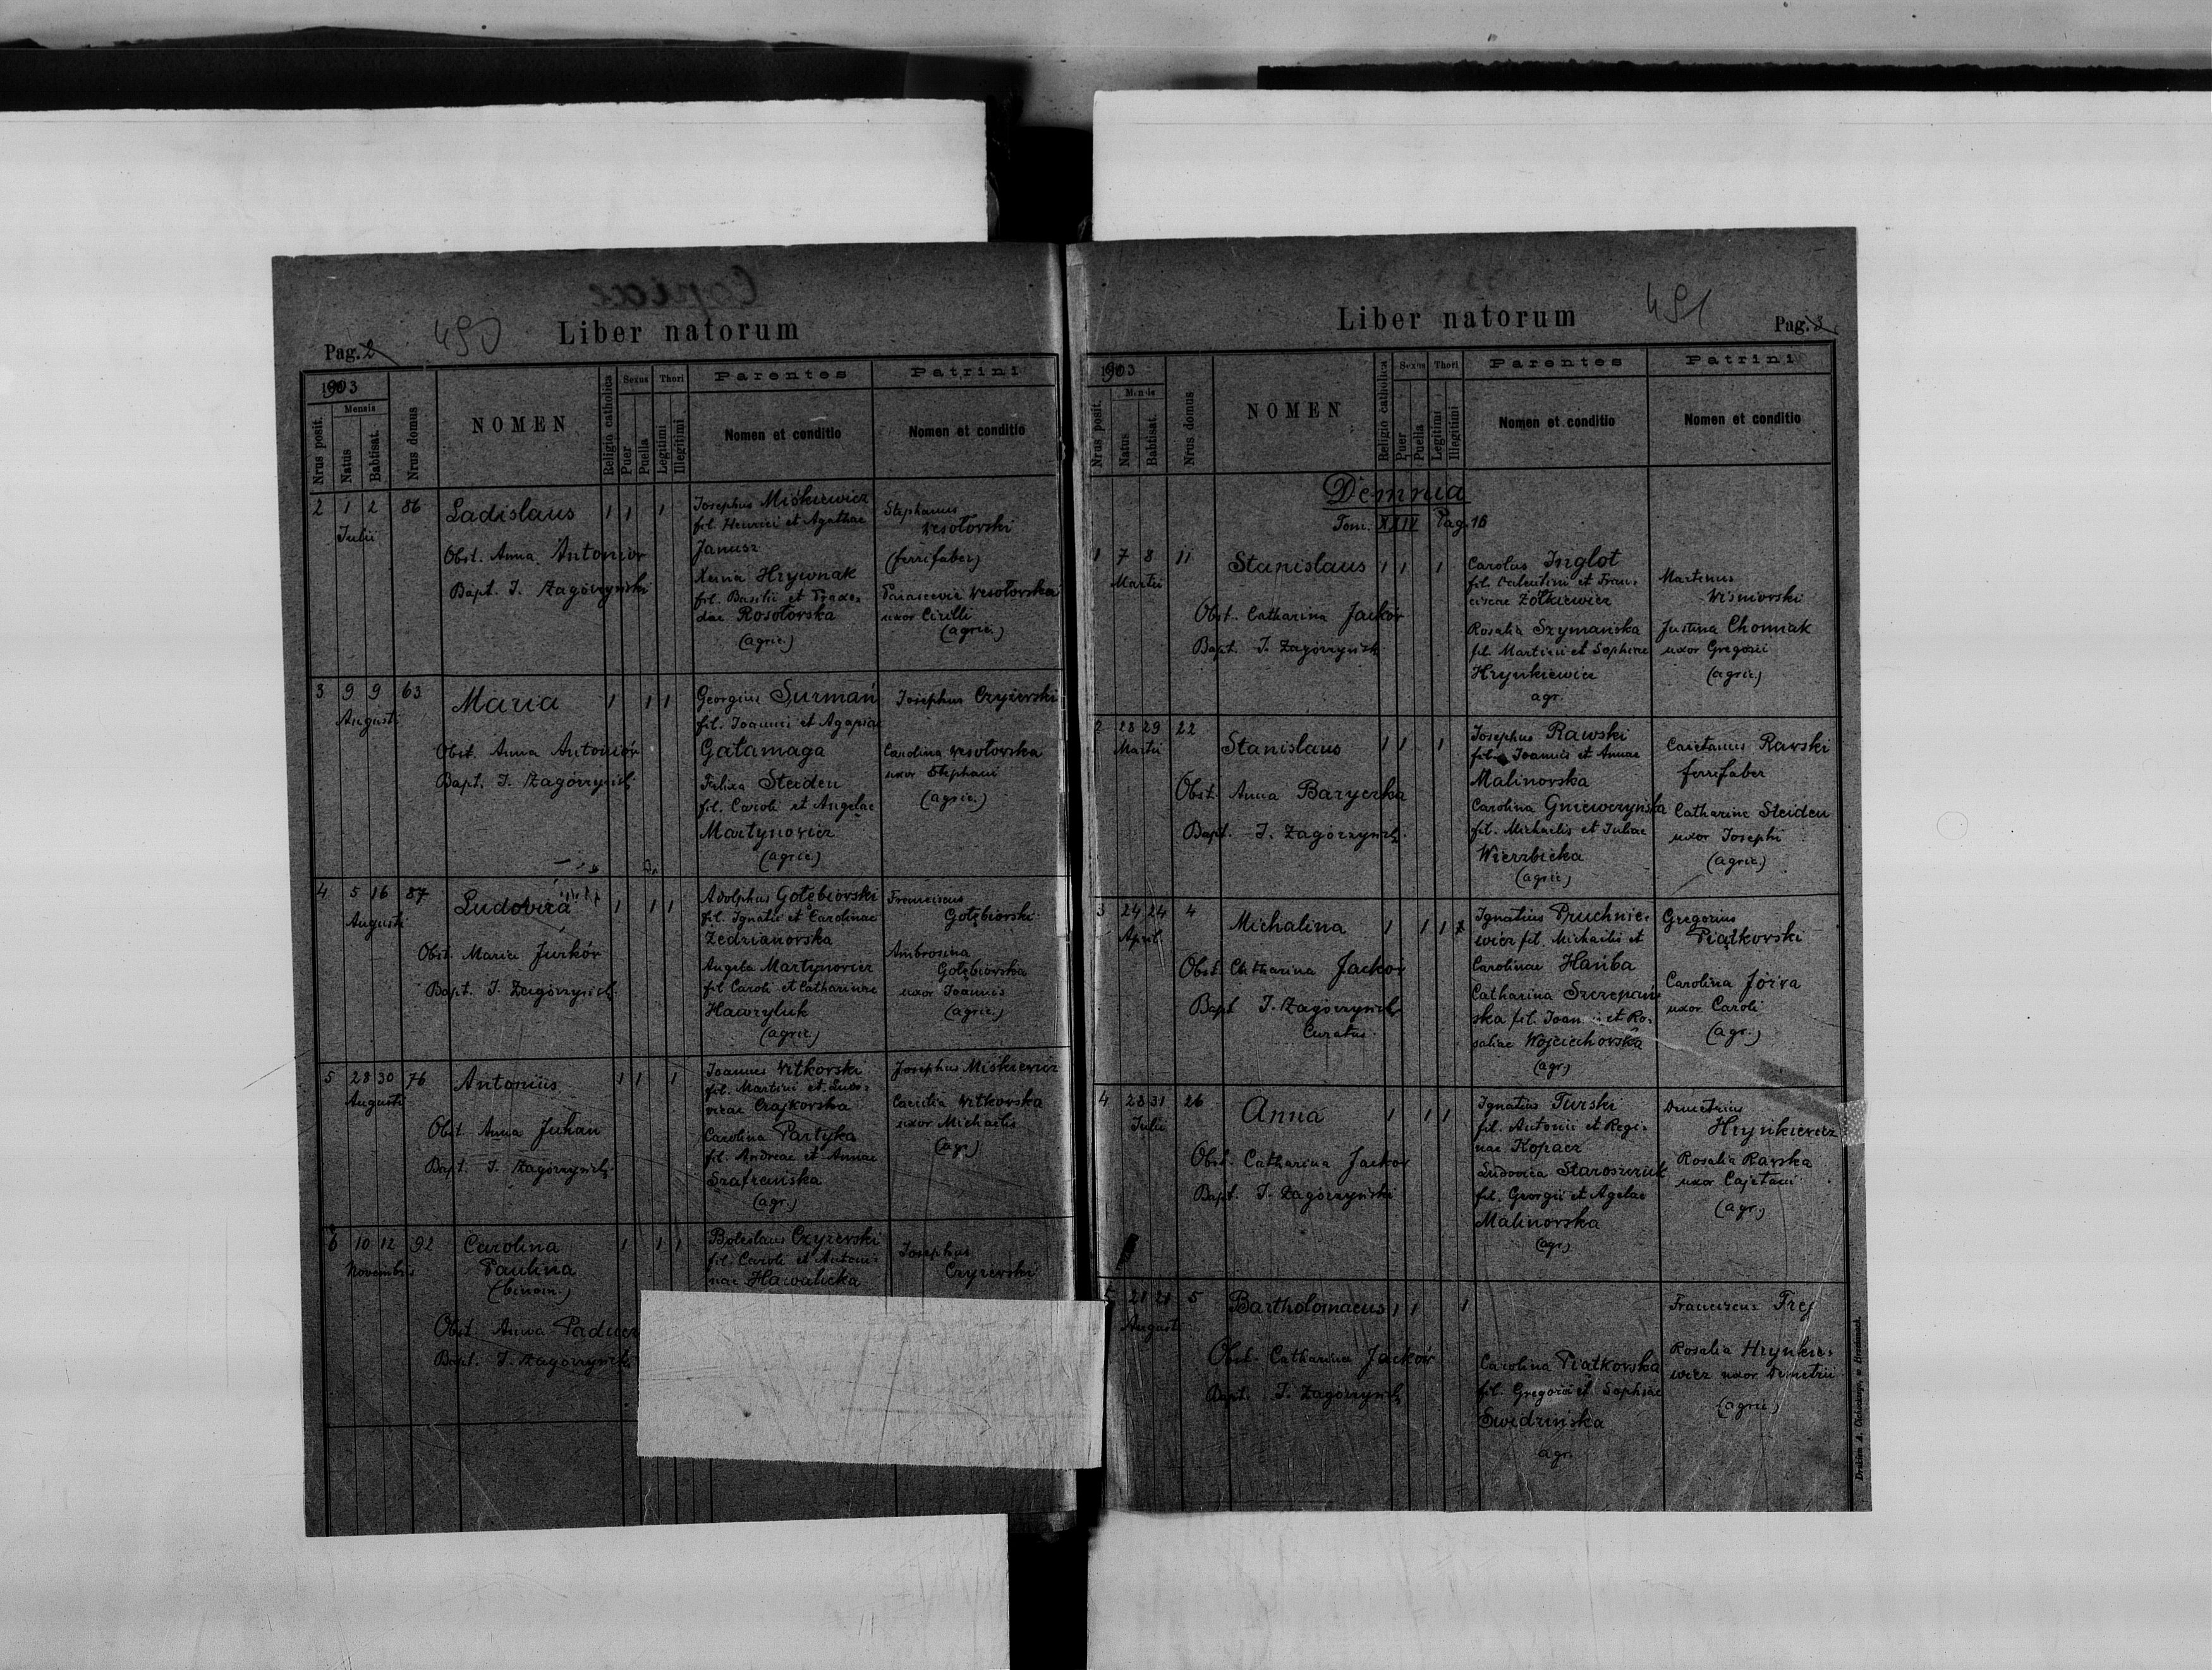 Copiae
Liber natorum
490
Pag. 2
1903
Nrus posit.
Mensis
Natus
Babtisat.
Nrus domus
NOMEN
Religio catholica
Sexus
Puer
Puella
Thori
Legitimi
Illegitimi
Parentes
Nomen et conditio
Patrini
Nomen et conditio
2 1 2 86
Julii
Ladislaus 1 1 1
Obst. Anna Antoniov
Bapt. J. Zagórzyński
Josephus Miśkiewicz
fil. Henrici et Agathae
Janusz
Xenia Hrywnak
fil. Basilii et Praxe-
dae Rosołovska
(agric.)
Stephanus
Wesołovski
(ferrifaber)
Parascevia Wesołovska
uxor Cirilli
(agric.)
3 9 9 63
Augusti
Maria 1 1 1
Obst. Anna Antoniów
Bapt. J. Zagórzyński
Georgius Surmań
fil. Joannis et Agapiae
Gałamaga
Felixa Steiden
fil. Caroli et Angelae
Martynovicz
(agric)
Josephus Czyżevski
Carolina Wesołovska
uxor Stephani
(agric.)
4 5 16 87
Augusti
Ludovica 1 1 1
Obst. Maria Jurków
Bapt. J. Zagórzyński
Adolphus Gołębiovski
fil. Ignatii et Carolinae
Żedzianovska
Angela Martynovicz
fil Caroli et Catharinae
Hawryluk
(agric)
Franciscus
Gołębiovski
Ambrosina
Gołębiovska
uxor Joannis
(agric.)
5 28 30 76
Augusti
Antonius 1 1 1
Obst. Anna Juhan
Bapt. J. Zagórzyński
Joannes Witkovski
fil. Martini et Ludo-
vicae Czajkovska
Carolina Partyka
fil. Andreae et Annae
Szafrańska
(agr.)
Josephus Miśkievicz
Caecilia Witkovska
uxor Michaelis
(agr.)
6 10 12 92
Novembris
Carolina 1 1 1
Paulina
(binom.)
Obst. Anna Paduch
Bapt. J. Zagórzyński
Boleslaus Czyżevski
fil. Caroli et Antoni-
nae Hawalicka
Josephus
Czyżevski
Liber natorum
491
Pag. 3
1903
Nrus posit.
Mensis
Natus
Babtisat.
Nrus domus
NOMEN
Religio catholica
Sexus
Puer
Puella
Thori
Legitimi
Illegitimi
Parentes
Nomen et conditio
Patrini
Nomen et conditio
Demnia
Tom. XXIV Pag. 16
1 7 8 11
Martii
Stanislaus 1 1 1
Obst. Catharina Jacków
Bapt. J. Zagórzyński
Carolus Inglot
fil. Valentini et Fran-
ciscae Żółkiewicz
Rosalia Szymańska
fil. Martini et Sophiae
Hrynkiewicz
agr.
Martinus
Wiśniovski
Justina Chomiak
uxor Gregorii
(agric.)
2 28 29 22
Martii
Stanislaus 1 1 1
Obst. Anna Baryczka
Bapt. J. Zagórzyński
Josephus Rawski
fil. Joannis et Annae
Malinovska
Carolina Gniewczyńska
fil. Michaelis et Juliae
Wierzbicka
(agric)
Caietanus Ravski
ferrifaber
Catharine Steiden
uxor Josephi
(agric.)
3 24 24 4
April.
Michalina 1 1 1
Obst. Catharina Jacków
Bapt J. Zagórzyński
Curatus
Ignatius Pruchnie-
wicz fil. Michaelis et
Carolinae Hańba
Catharina Szczepań-
ska fil. Joannis et Ro-
saliae Wojciechovska
(agr.)
Gregorius
Piątkovski
Carolina Joiva
uxor Caroli
(agr.)
4 28 31 26
Julii
Anna 1 1 1
Obst. Catharina Jacków
Bapt. J. Zagórzyński
Ignatius Turski
fil. Antonii et Regi-
nae Kopacz
Ludovica Staroszczuk
fil. Georgii et Agelae
Malinovska
(agr.)
Demetrius
Hrynkievicz
Rosalia Ravska
uxor Cajetani
(agr.)
5 21 21 5
Augusti
Bartholomaeus 1 1 1
Obst. Catharina Jacków
Bapt. J. Zagórzyński
Carolina Piątkovska
fil. Gregorii et Sophiae
Świdzińska
agr.
Franciscus Frej
Rosalia Hrynkie-
wicz uxor Demetrii
(agric)